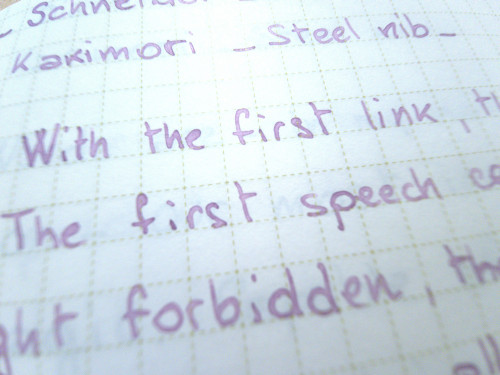 - Schneider
Kakimori - Steel nib -
With the first link, th
The first speech ce
ght forbidden, the
all